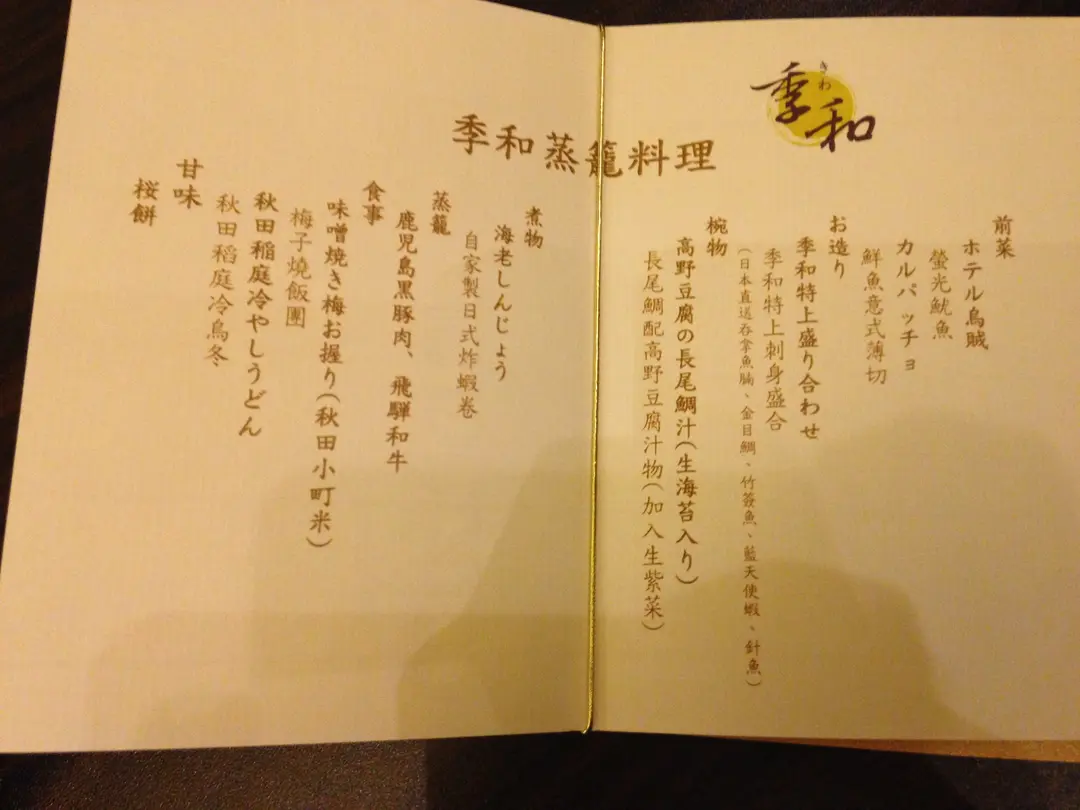 季和
きわ
季和蒸籠料理
前菜
ホテル烏賊
螢光魷魚
カルパッチョ
鮮魚意式薄切
お造り
季和特上盛り合わせ
季和特上刺身盛合
(日本直送吞拿魚腩、金目鯛、竹簽魚、藍天使蝦、針魚)
椀物
高野豆腐の長尾鯛汁(生海苔入り)
長尾鯛配高野豆腐汁物(加入生紫菜)
煮物
海老しんじょう
自家製日式炸蝦卷
蒸籠
鹿児島黒豚肉、飛騨和牛
食事
味噌焼き梅お握り(秋田小町米)
梅子燒飯團
秋田稲庭冷やしうどん
秋田稻庭冷烏冬
甘味
桜餅